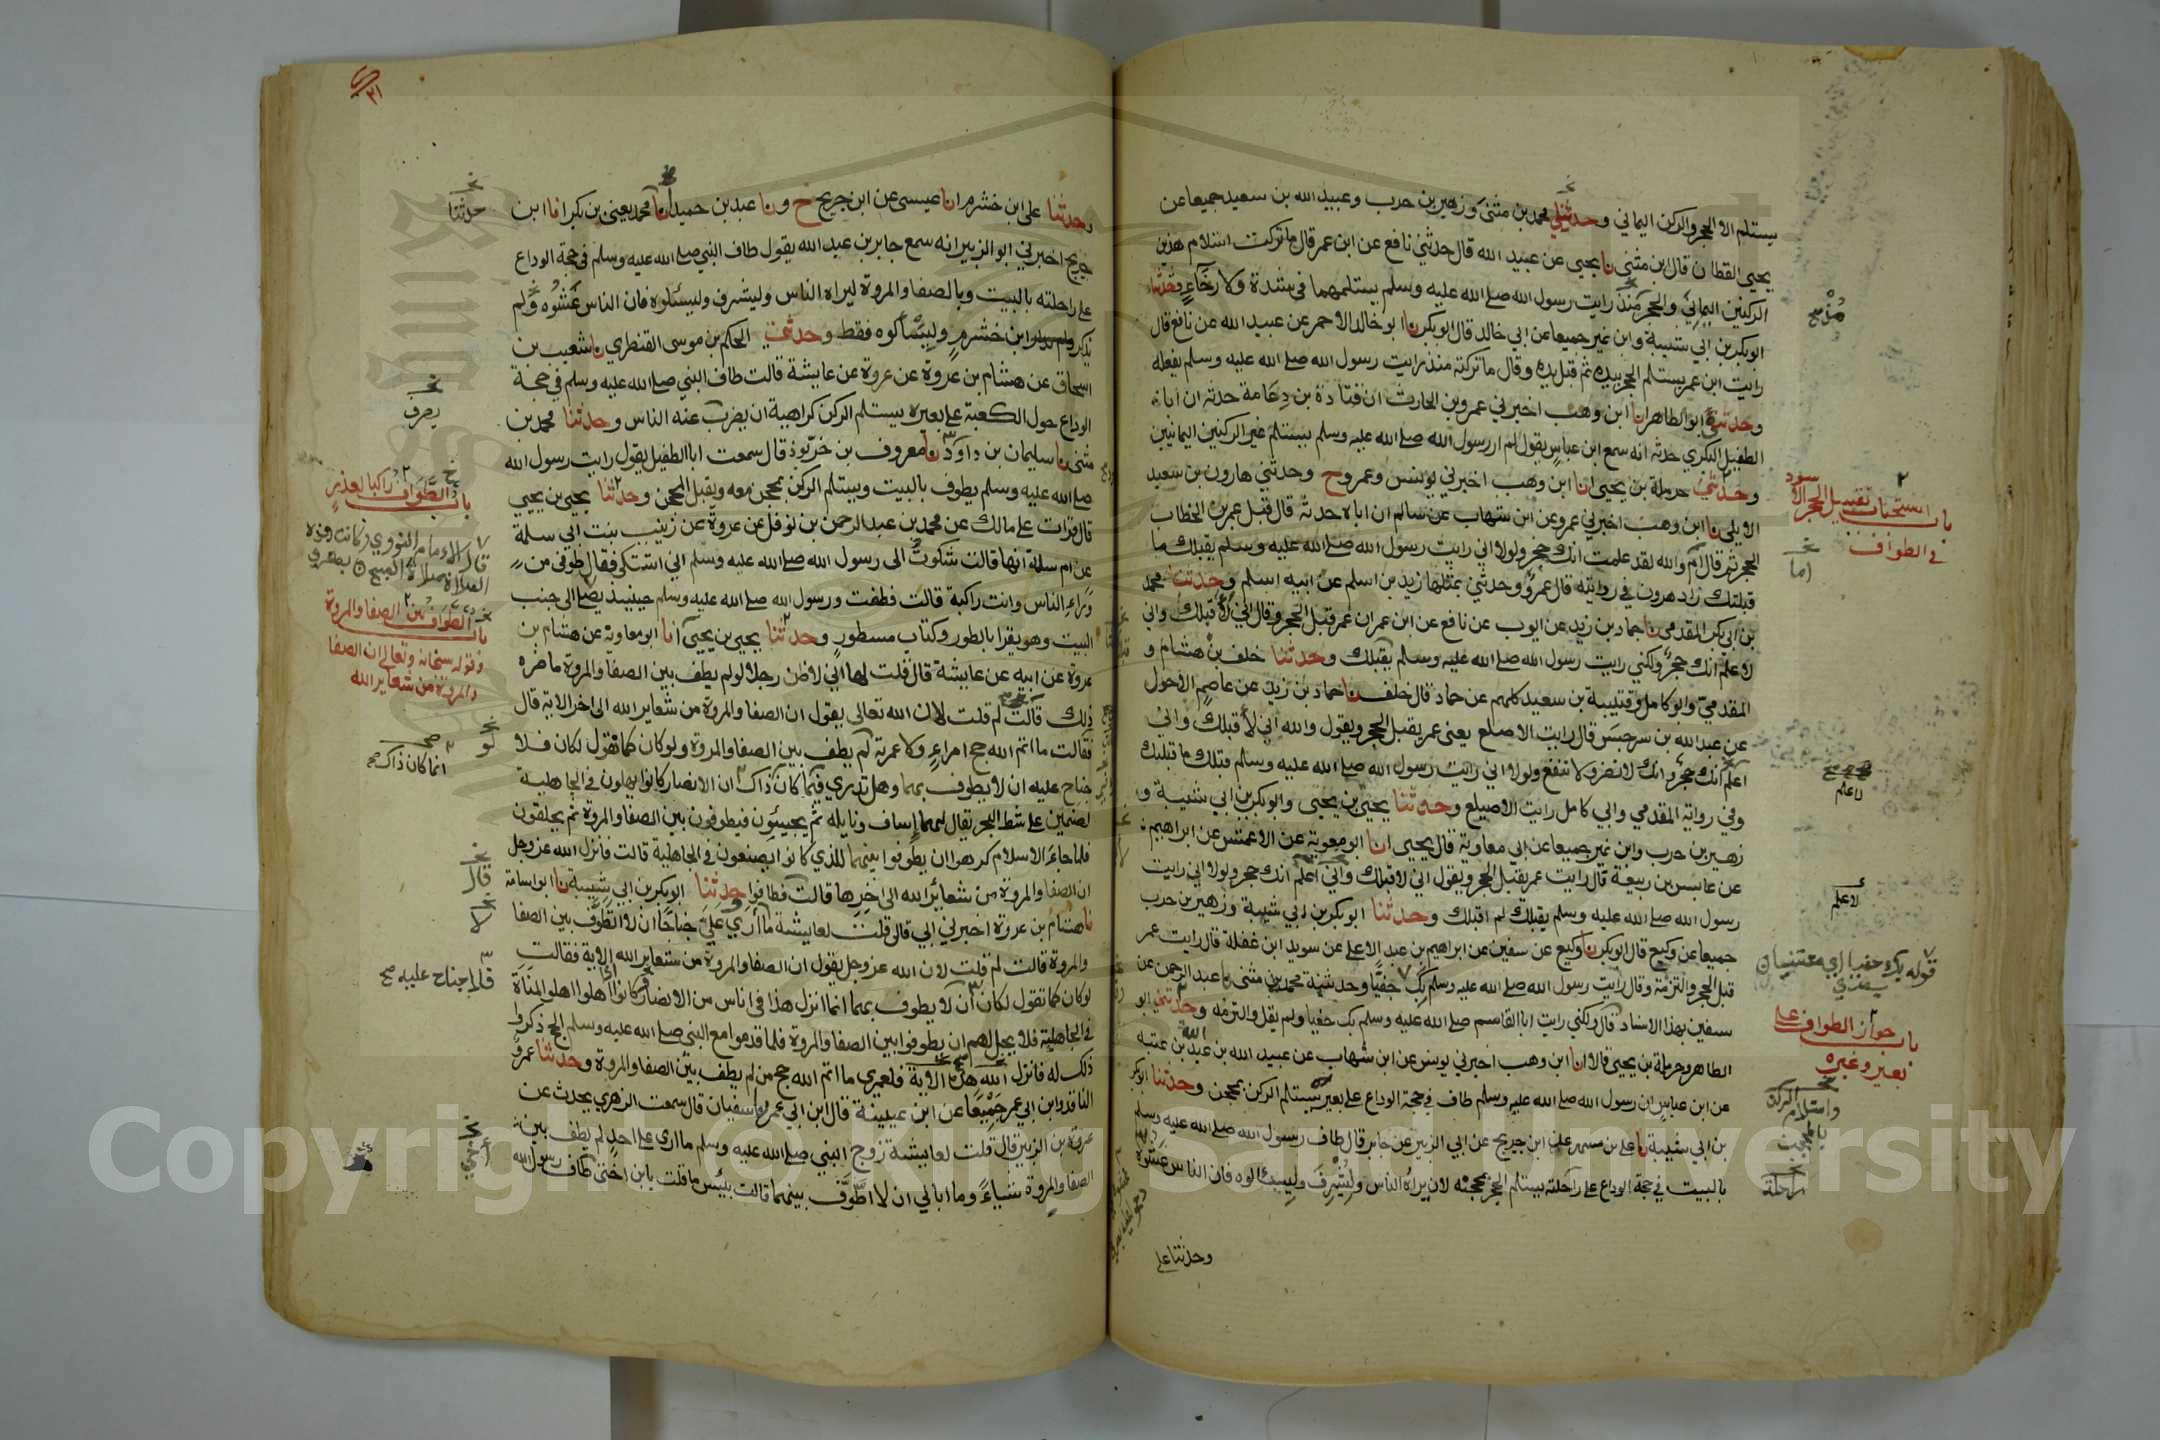 يستلم الا الحجر والركن اليماني وحدثني محمد بن مثنى وزهير بن حرب وعبيد الله بن سعيد جميعا عن
يحيى القطان قال ابن مثنى نا يحيى عن عبيد الله قال حدثني نافع عن ابن عمر قال ما تركت استلام هذين
الركنين اليماني والحجر منذ رايت رسول الله صلى الله عليه وسلم يستلمهما في شدة ولا رخاء وحدثنا
ابو بكر بن ابي شيبة وابن نمير جميعا عن ابي خالد قال ابو بكر نا ابو خالد الاحمر عن عبيد الله عن نافع قال
رايت ابن عمر يستلم الحجر بيده ثم قبل يده وقال ما تركته منذ رايت رسول الله صلى الله عليه وسلم يفعله
وحدثني ابو الطاهر انا ابن وهب اخبرني عمرو بن الحارث ان قتادة بن دعامة حدثه ان ابا
الطفيل البكري حدثه انه سمع ابن عباس يقول لم ار رسول الله صلى الله عليه وسلم يستلم غير الركنين اليمانيين
وحدثني حرملة بن يحيى انا ابن وهب اخبرني يونس وعمرو ح وحدثني هارون بن سعيد
الايلي نا ابن وهب اخبرني عمرو عن ابن شهاب عن سالم ان اباه حدثه قال قبل عمر بن الخطاب
الحجر ثم قال ام والله لقد علمت انك حجر ولولا اني رايت رسول الله صلى الله عليه وسلم يقبلك ما
قبلتك زاد هرون في روايته قال عمرو وحدثني بمثلها زيد بن اسلم عن ابيه اسلم وحدثنا محمد
بن ابي بكر المقدمي نا حماد بن زيد عن ايوب عن نافع عن ابن عمر ان عمر قبل الحجر وقال اني لاقبلك واني
لاعلم انك حجر ولكني رايت رسول الله صلى الله عليه وسلم يقبلك وحدثنا خلف بن هشام و
المقدمي وابو كامل وقتيبة بن سعيد كلهم عن حماد قال خلف نا حماد بن زيد عن عاصم الاحول
عن عبد الله بن سرجس قال رايت الاصلع يعني عمر يقبل الحجر ويقول والله اني لاقبلك واني
اعلم انك حجر وانك لا تضر ولا تنفع ولولا اني رايت رسول الله صلى الله عليه وسلم قبلك ما قبلتك
وفي رواية المقدمي وابي كامل رايت الاصيلع وحدثنا يحيى بن يحيى وابو بكر بن ابي شيبة و
زهير بن حرب وابن نمير جميعا عن ابي معاوية قال يحيى انا ابو معوية عن الاعمش عن ابراهيم
عن عابس بن ربيعة قال رايت عمر يقبل الحجر ويقول اني لاقبلك واني اعلم انك حجر ولولا اني رايت
رسول الله صلى الله عليه وسلم يقبلك لم اقبلك وحدثنا ابو بكر بن ابي شيبة وزهير بن حرب
جميعا عن وكيع قال ابو بكر نا وكيع عن سفين عن ابراهيم بن عبد الاعلى عن سويد ابن غفلة قال رايت عمر
قبل الحجر والتزمه وقال رايت رسول الله صلى الله عليه وسلم بك حفيا وحدثنيه محمد بن مثنى نا عبد الرحمن عن
سفين بهذا الاسناد قال ولكني رايت ابا القاسم صلى الله عليه وسلم بك حفيا ولم يقل والتزمه وحدثني ابو
الطاهر وحرملة بن يحيى قالا انا ابن وهب اخبرني يونس عن ابن شهاب عن عبيد الله بن عبد الله بن عتبه
عن ابن عباس ان رسول الله صلى الله عليه وسلم طاف في حجة الوداع على بعير يستلم الركن بمحجن وحدثنا ابو بكر
بن ابي شيبة نا علي بن مسهر عن ابن جريج عن ابي الزبير عن جابر قال طاف رسول الله صلى الله عليه وسلم
بالبيت في حجة الوداع على راحلته يستلم الحجر بمحجنه لان يراه الناس وليشرف وليسالوه فان الناس غشوه
وحدثنا علي
باب استحباب تقبيل الحجر الاسود
في الطواف
اما
لاعلم
لاعلم
باب جواز الطواف على
بعير وغيره
واستلام الركن
راحلة
وحدثنا علي ابن خشرم انا عيسى عن ابن جريج ح ونا عبد بن حميد انا محمد يعني بن بكر انا ابن
جريج اخبرني ابو الزبير انه سمع جابر بن عبد الله يقول طاف النبي صلى الله عليه وسلم في حجة الوداع
على راحلته بالبيت وبالصفا والمروة ليراه الناس وليشرف وليسئلوه فان الناس غشوه ولم
يذكر ابن خشرم وليسئالوه فقط وحدثني الحكم بن موسى القنطري نا شعيب بن
اسحاق عن هشام بن عروة عن عروة عن عايشة قالت طاف النبي صلى الله عليه وسلم في حجة
الوداع حول الكعبة على بعيره يستلم الركن كراهية ان يضرب عنه الناس وحدثنا محمد بن
مثنى نا سليمان بن داود نا معروف بن خربوذ قال سمعت ابا الطفيل يقول رايت رسول الله
صلى الله عليه وسلم يطوف بالبيت ويستلم الركن بمحجن معه ويقبل المحجن وحدثنا يحيى بن يحيى
قال قرات على مالك عن محمد بن عبد الرحمن بن نوفل عن عروة عن زينب بنت ابي سلمة
عن ام سلمة انها قالت شكوت الى رسول الله صلى الله عليه وسلم اني اشتكي فقال طوفي من
وراء الناس وانت راكبة قالت فطفت ورسول الله صلى الله عليه وسلم حينيذ يصلي الى جنب
البيت وهو يقرا بالطور وكتاب مسطور وحدثنا يحيى بن يحيى انا ابو معاوية عن هشام بن
عروة عن ابيه عن عايشة قال قلت لها اني لاظن رجلا لو لم يطف بين الصفا والمروة ما ضره
ذلك قالت لم قلت لان الله تعالى يقول ان الصفا والمروة من شعاير الله الى اخر الاية قال
فقالت ما اتم الله حج امرء ولا عمرته لم يطف بين الصفا والمروة ولو كان كما تقول لكان فلا
جناح عليه ان لا يطوف بهما وهل تدري فيما كان ذاك ان الانصار كانوا يهلون في الجاهلية
لصنمين على شط البحر يقال لهما إساف ونايله ثم يجيئون فيطوفون بين الصفا والمروة ثم يحلقون
فلما جاء الاسلام كرهوا ان يطوفوا بينهما للذي كانوا يصنعون في الجاهلية قالت فانزل الله عز وجل
ان الصفا والمروة من شعائر الله الى اخرها قالت فطافوا وحدثنا ابو بكر بن ابي شيبة نا ابو اسامة
نا هشام بن عروة اخبرني ابي قال قلت لعايشة ما أرى علي جناحا ان لا اتطوف بين الصفا
والمروة قالت لم قلت لان الله عز وجل يقول ان الصفا والمروة من شعاير الله الاية فقالت
لو كان كما تقول لكان ان لا يطوف بهما انما انزل هذا في اناس من الانصار كانوا اذا أهلوا اهلوا لمناة
في الجاهلية فلا يحل لهم ان يطوفوا بين الصفا والمروة فلما قدموا مع النبي صلى الله عليه وسلم الحج ذكروا
ذلك له فانزل الله هذه الاية فلعمري ما اتم الله حج من لم يطف بين الصفا والمروة وحدثنا عمرو
الناقد وابن ابي عمر جميعا عن ابن عيينة قال ابن ابي عمر نا سفيان قال سمعت الزهري يحدث عن
عروة بن الزبير قال قلت لعايشة زوج النبي صلى الله عليه وسلم ما ارى على احد لم يطف بين
الصفا والمروة شياء وما ابالي ان لا اطوف بينهما قالت بيئس ما قلت يابن اختي طاف رسول الله
حدثنا
يصرف
باب الطواف راكبا لعذر
قال الامام النووي وكانت هذه
الصلاة صلاة الصبح
باب الطواف بين الصفا والمروة
وقوله سبحانه وتعالى ان الصفا
والمروة من شعاير الله
لو
انما كان ذاك صح
قال
فلا جناح عليه صح
Copyright © King Saud University